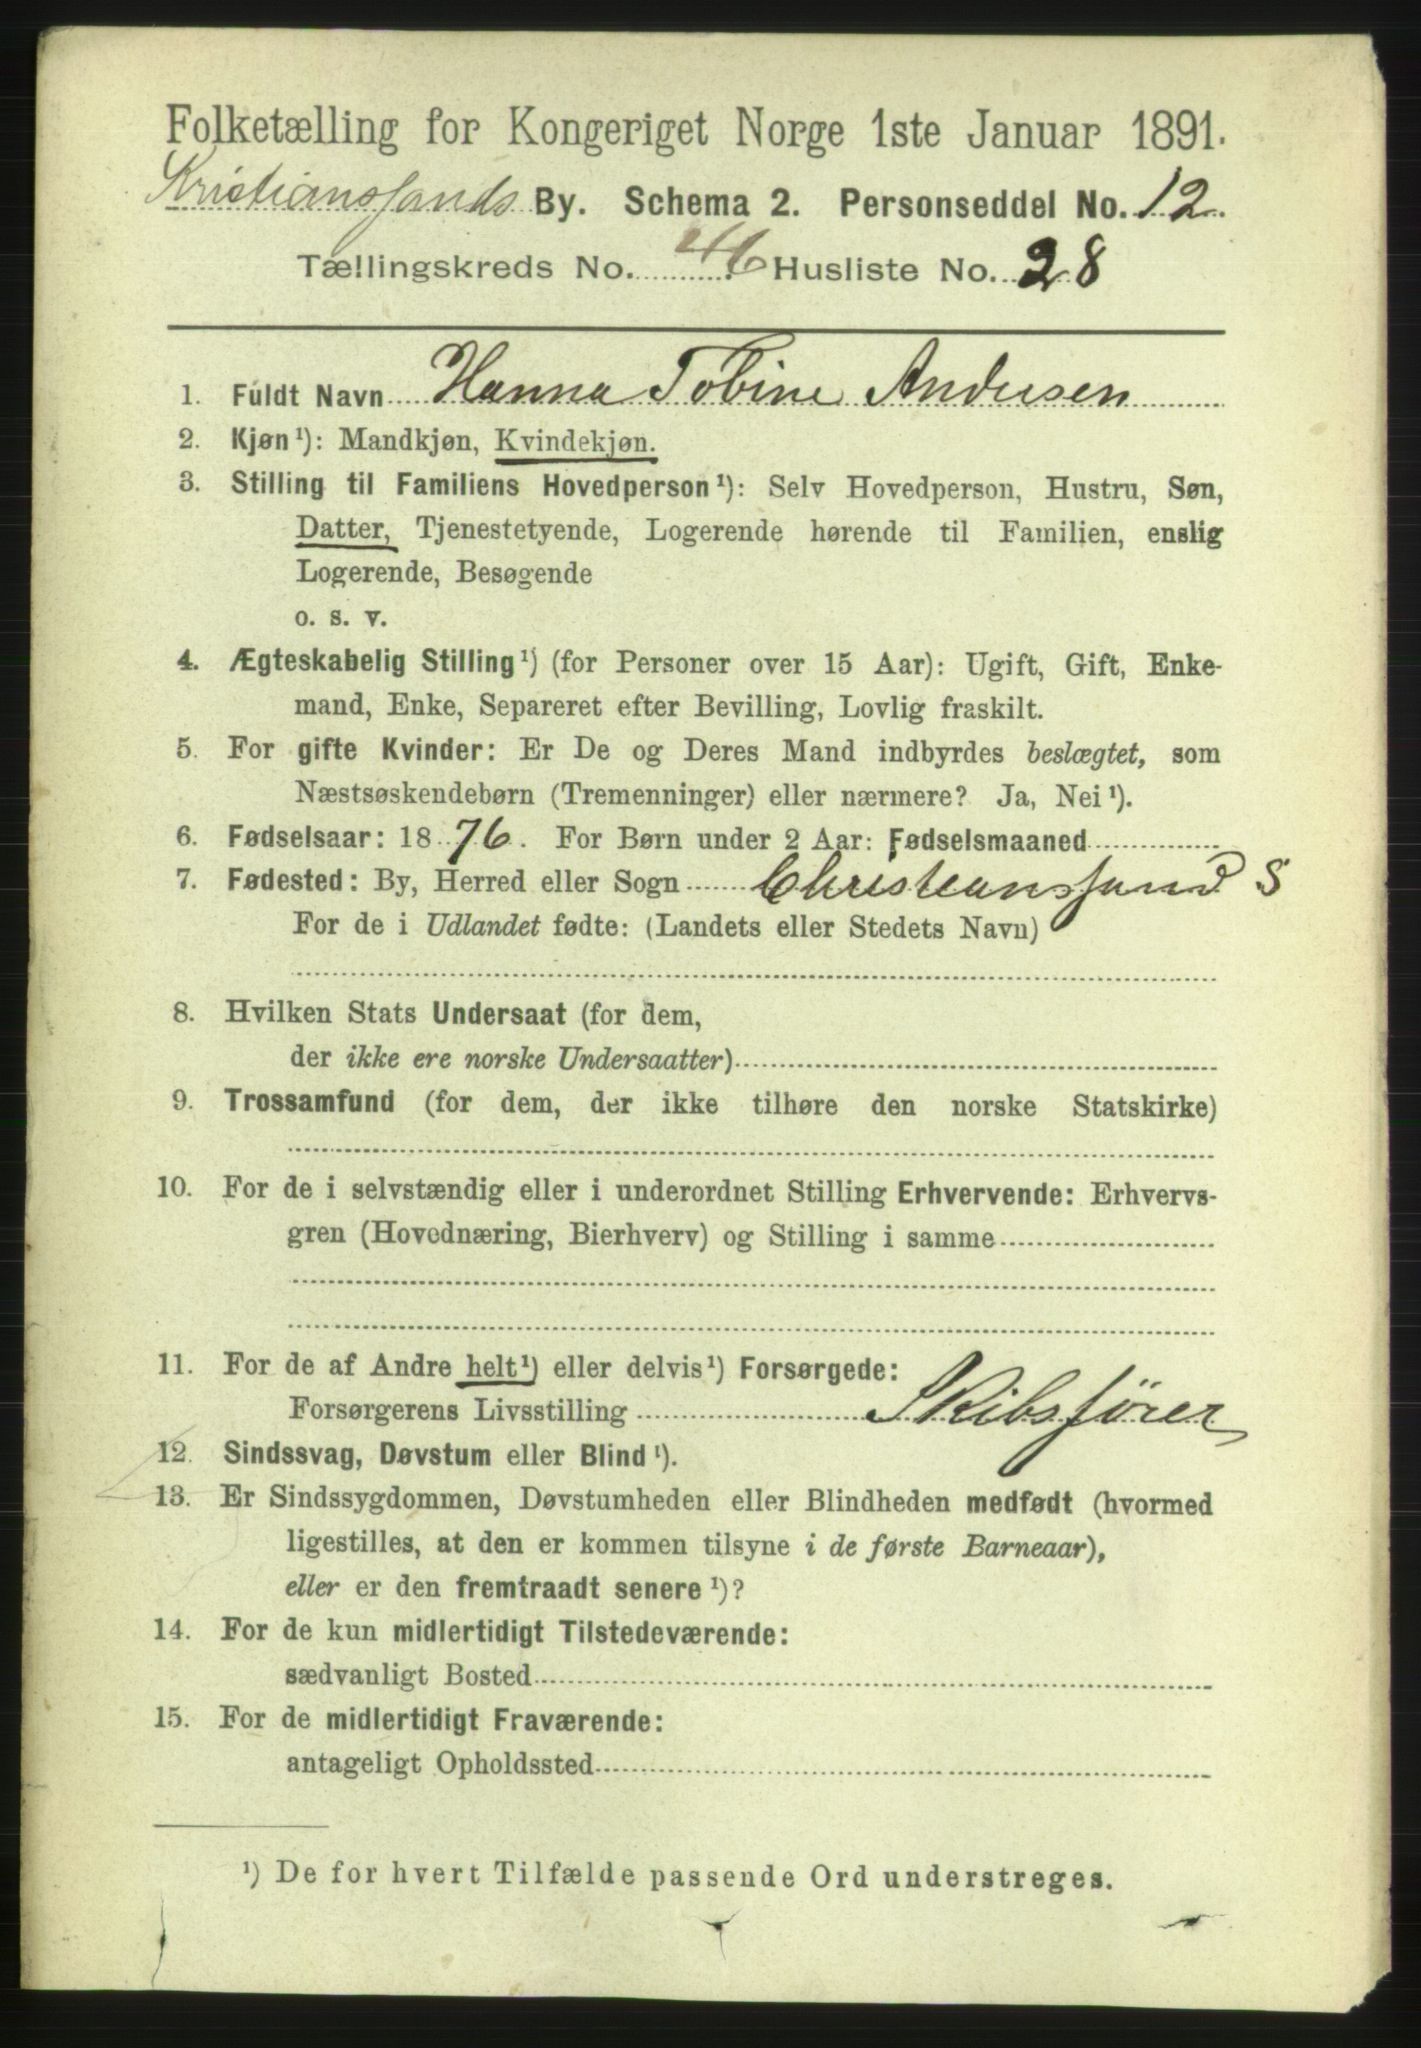 Folketælling for Kongeriget Norge 1ste Januar 1891.
Kristianssands By. Schema 2. Personseddel No. 12
Tællingskreds No. 46 Husliste No. 28
1. Fuldt Navn Hanna Tobine Andersen
2. Kjøn¹): Mandkjøn, Kvindekjøn.
3. Stilling til Familiens Hovedperson¹): Selv Hovedperson, Hustru, Søn,
Datter, Tjenestetyende, Logerende hørende til Familien, enslig
Logerende, Besøgende
o. s. v.
4. Ægteskabelig Stilling¹) (for Personer over 15 Aar): Ugift, Gift, Enke-
mand, Enke, Separeret efter Bevilling, Lovlig fraskilt.
5. For gifte Kvinder: Er De og Deres Mand indbyrdes beslægtet, som
Næstsøskendebørn (Tremenninger) eller nærmere? Ja, Nei¹).
6. Fødselsaar: 1876. For Børn under 2 Aar: Fødselsmaaned
7. Fødested: By, Herred eller Sogn Christianssand S
For de i Udlandet fødte: (Landets eller Stedets Navn)
8. Hvilken Stats Undersaat (for dem,
der ikke ere norske Undersaatter)
9. Trossamfund (for dem, der ikke tilhøre den norske Statskirke)
10. For de i selvstændig eller i underordnet Stilling Erhvervende: Erhvervs-
gren (Hovednæring, Bierhverv) og Stilling i samme
11. For de af Andre helt¹) eller delvis¹) Forsørgede:
Forsørgerens Livsstilling Skibsfører
12. Sindssvag, Døvstum eller Blind¹).
13. Er Sindssygdommen, Døvstumheden eller Blindheden medfødt (hvormed
ligestilles, at den er kommen tilsyne i de første Barneaar),
eller er den fremtraadt senere¹)?
14. For de kun midlertidigt Tilstedeværende:
sædvanligt Bosted
15. For de midlertidigt Fraværende:
antageligt Opholdssted
¹) De for hvert Tilfælde passende Ord understreges.